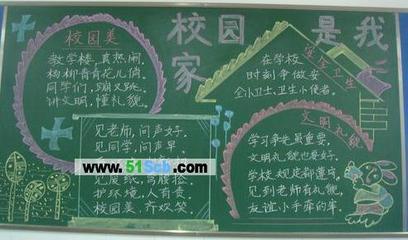 校园是我家
校园美
教学楼,真热闹,
杨柳青青花儿俏。
同学们,蹦又跳,
讲文明,懂礼貌。
见老师,问声好,
见同学,问声早,
www.51Scb.com
见废纸,弯腰捡,
护环境,人有责,
校园美,齐欢笑。
讲究卫生
在学校
时刻争做安
全小卫士,卫生小使者。
文明礼貌
学习争先最重要,
文明礼貌也要好。
学校规定都遵守,
见到老师有礼貌,
友谊小手牵的牢。